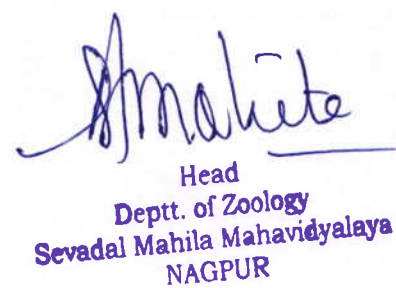 Head
Deptt. of Zoology
Sevadal Mahila Mahavidyalaya
NAGPUR